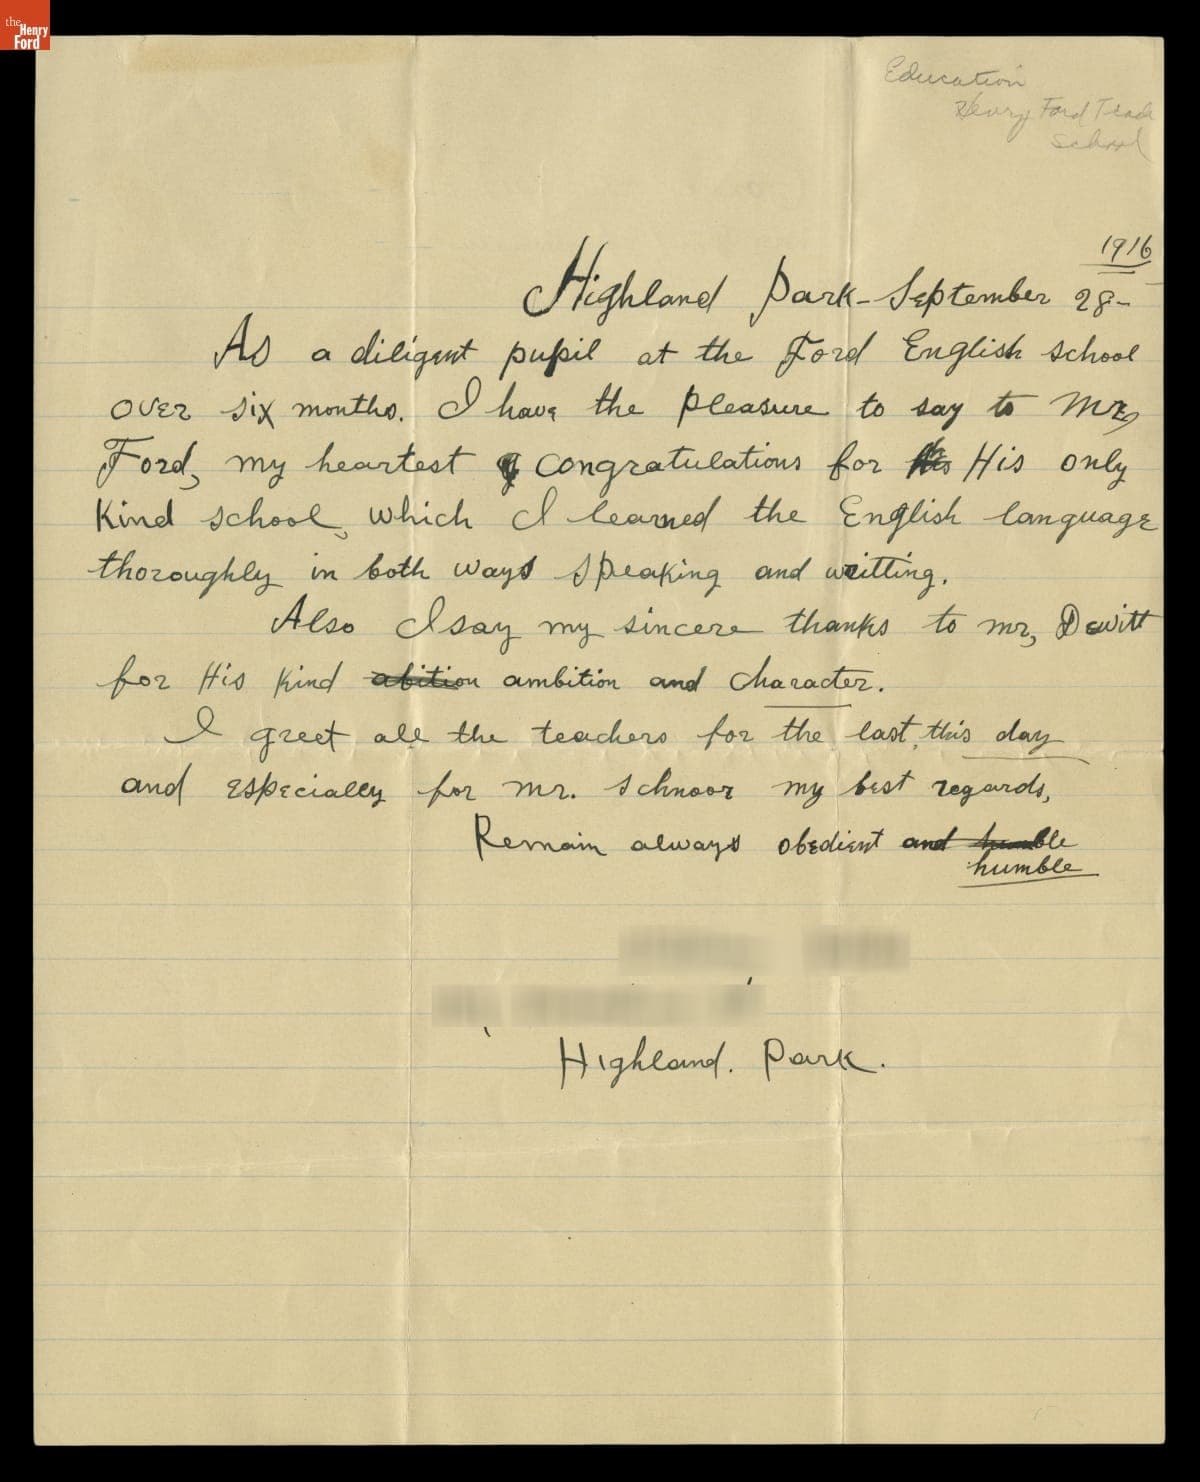 the
Henry
Ford
Education
Henry Ford Trade
School
1916
Highland Park - September 28 -
As a diligent pupil at the Ford English school
over six months. I have the pleasure to say to Mr,
Ford, my heartest congratulations for his His only
kind school, which I learned the English language
thoroughly in both ways speaking and writting.
Also I say my sincere thanks to mr, Dewitt
for His kind abition ambition and character.
I greet all the teachers for the last, this day
and especially for mr. Schnoor my best regards,
Remain always obedient and humble
humble
Highland. Park.